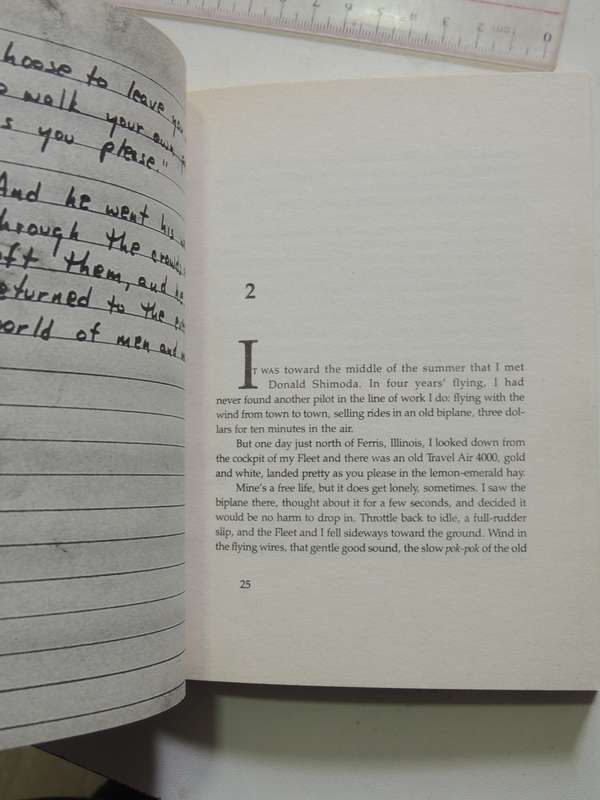 hoose to leave
walk your own
s you please."
And he went his
hrough the crowds
ft them, and he
eturned to the
orld of men and
2
IT WAS toward the middle of the summer that I met
Donald Shimoda. In four years' flying, I had
never found another pilot in the line of work I do: flying with the
wind from town to town, selling rides in an old biplane, three dol-
lars for ten minutes in the air.
But one day just north of Ferris, Illinois, I looked down from
the cockpit of my Fleet and there was an old Travel Air 4000, gold
and white, landed pretty as you please in the lemon-emerald hay.
Mine's a free life, but it does get lonely, sometimes. I saw the
biplane there, thought about it for a few seconds, and decided it
would be no harm to drop in. Throttle back to idle, a full-rudder
slip, and the Fleet and I fell sideways toward the ground. Wind in
the flying wires, that gentle good sound, the slow pok-pok of the old
25